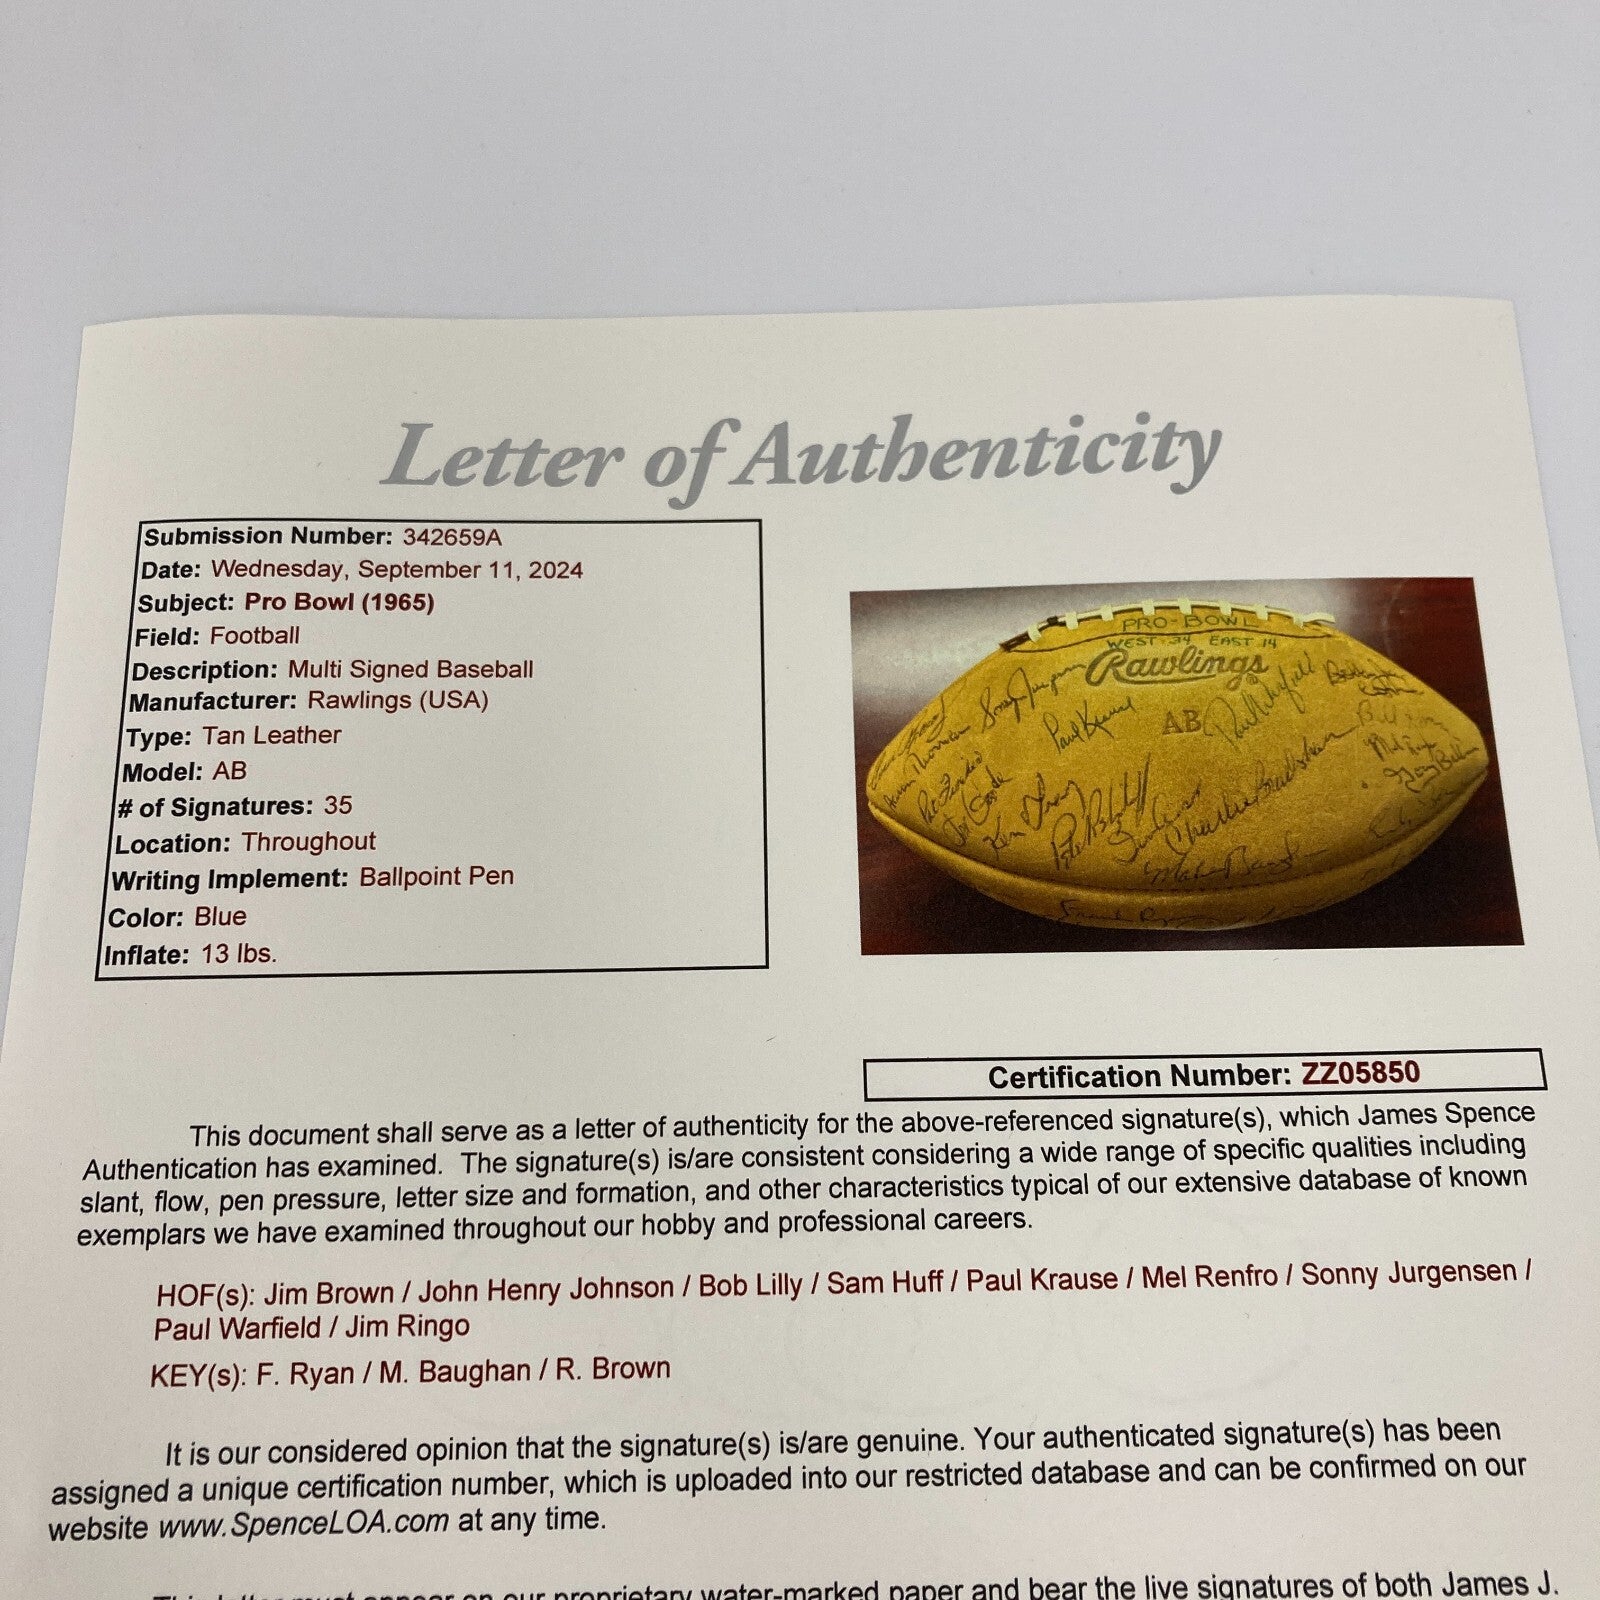 Letter of Authenticity
Submission Number: 342659A
Date: Wednesday, September 11, 2024
Subject: Pro Bowl (1965)
Field: Football
Description: Multi Signed Baseball
Manufacturer: Rawlings (USA)
Type: Tan Leather
Model: AB
# of Signatures: 35
Location: Throughout
Writing Implement: Ballpoint Pen
Color: Blue
Inflate: 13 lbs.
PRO-BOWL
WEST 34 EAST 14
Rawlings
AB
Sonny Jurgensen
Paul Krause
Paul Warfield
Pete Retzlaff
Charlie Bradshaw
Maxie Baughan
Frank Ryan
Certification Number: ZZ05850
This document shall serve as a letter of authenticity for the above-referenced signature(s), which James Spence
Authentication has examined. The signature(s) is/are consistent considering a wide range of specific qualities including
slant, flow, pen pressure, letter size and formation, and other characteristics typical of our extensive database of known
exemplars we have examined throughout our hobby and professional careers.
HOF(s): Jim Brown / John Henry Johnson / Bob Lilly / Sam Huff / Paul Krause / Mel Renfro / Sonny Jurgensen /
Paul Warfield / Jim Ringo
KEY(s): F. Ryan / M. Baughan / R. Brown
It is our considered opinion that the signature(s) is/are genuine. Your authenticated signature(s) has been
assigned a unique certification number, which is uploaded into our restricted database and can be confirmed on our
website www.SpenceLOA.com at any time.
This letter must appear on our proprietary water-marked paper and bear the live signatures of both James J.